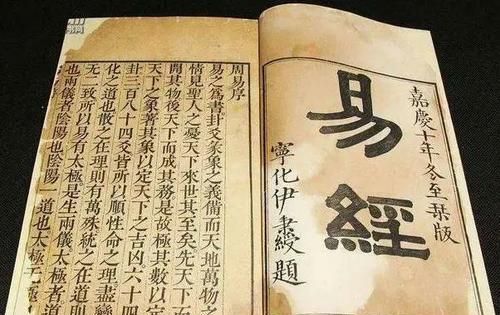 嘉慶十年冬至栞版
易經
寧化伊秉綬題
周易序
易之爲書卦爻彖象之義備而天地萬物之
情見聖人之憂天下來世其至矣先天下而
開其物後天下而成其務是故極其數以定
天下之象著其象以定天下之吉凶六十四
卦三百八十四爻皆所以順性命之理盡變
化之道也散之在理則有萬殊統之在道則
无二致所以易有太極是生兩儀太極者
也兩儀者陰陽也陰陽一道也太極无極